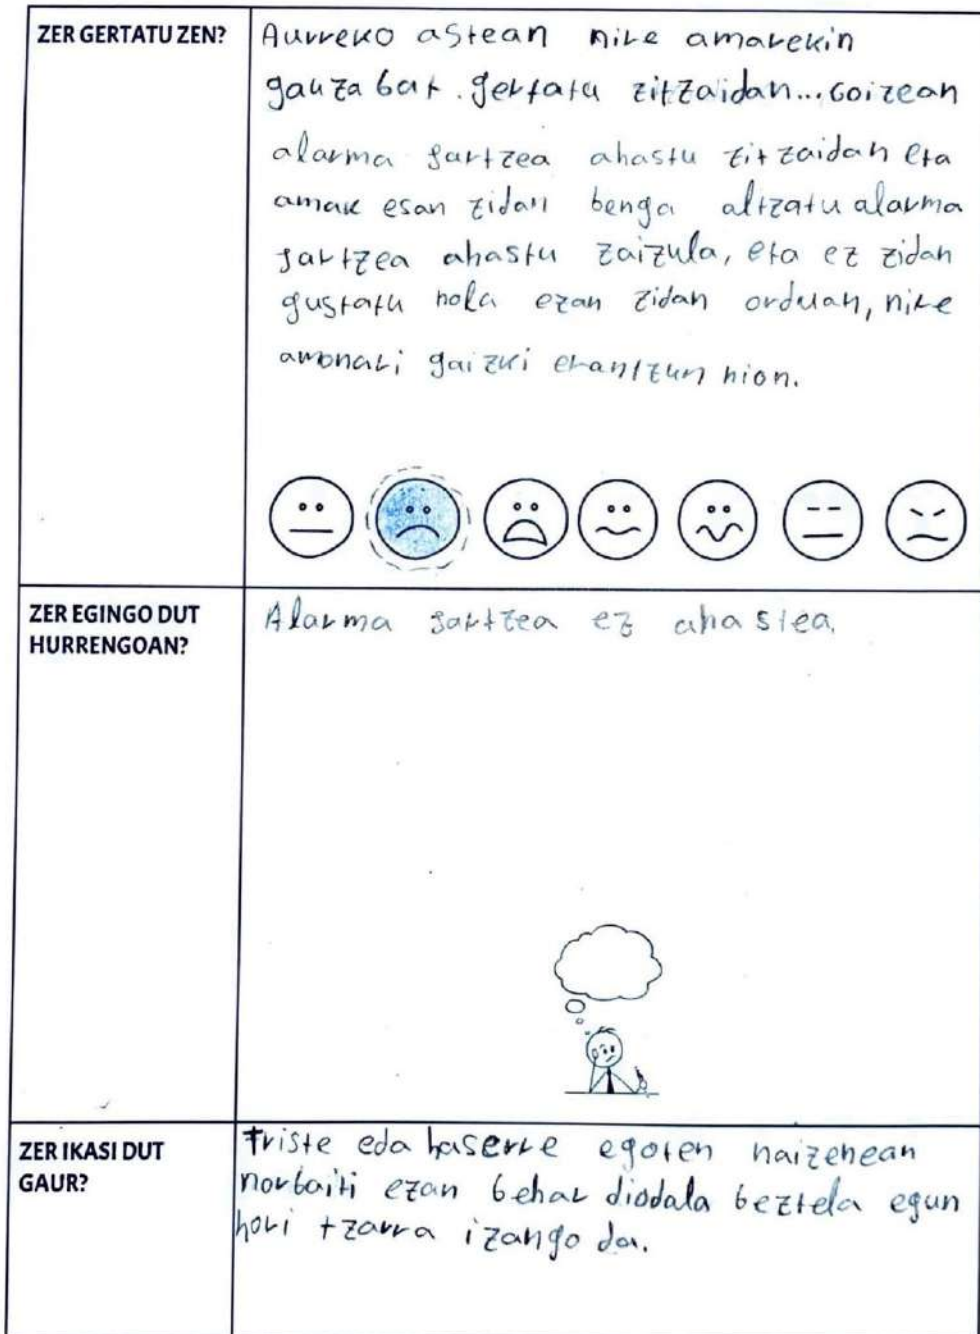 ZER GERTATU ZEN?
Aurreko astean nire amarekin
gauza bat gertatu zitzaidan... Goizean
alarma jartzea ahastu zitzaidan eta
amak esan zidan benga altzatu alarma
jartzea ahastu zaizula, eta ez zidan
gustatu nola ezan zidan orduan, nire
amonari gaizki erantzun nion.
ZER EGINGO DUT
HURRENGOAN?
Alarma jartzea ez ahastea.
ZER IKASI DUT
GAUR?
Triste eda haserre egoten naizenean
norbaiti ezan behar diodala beztela egun
hori tzarra izango da.